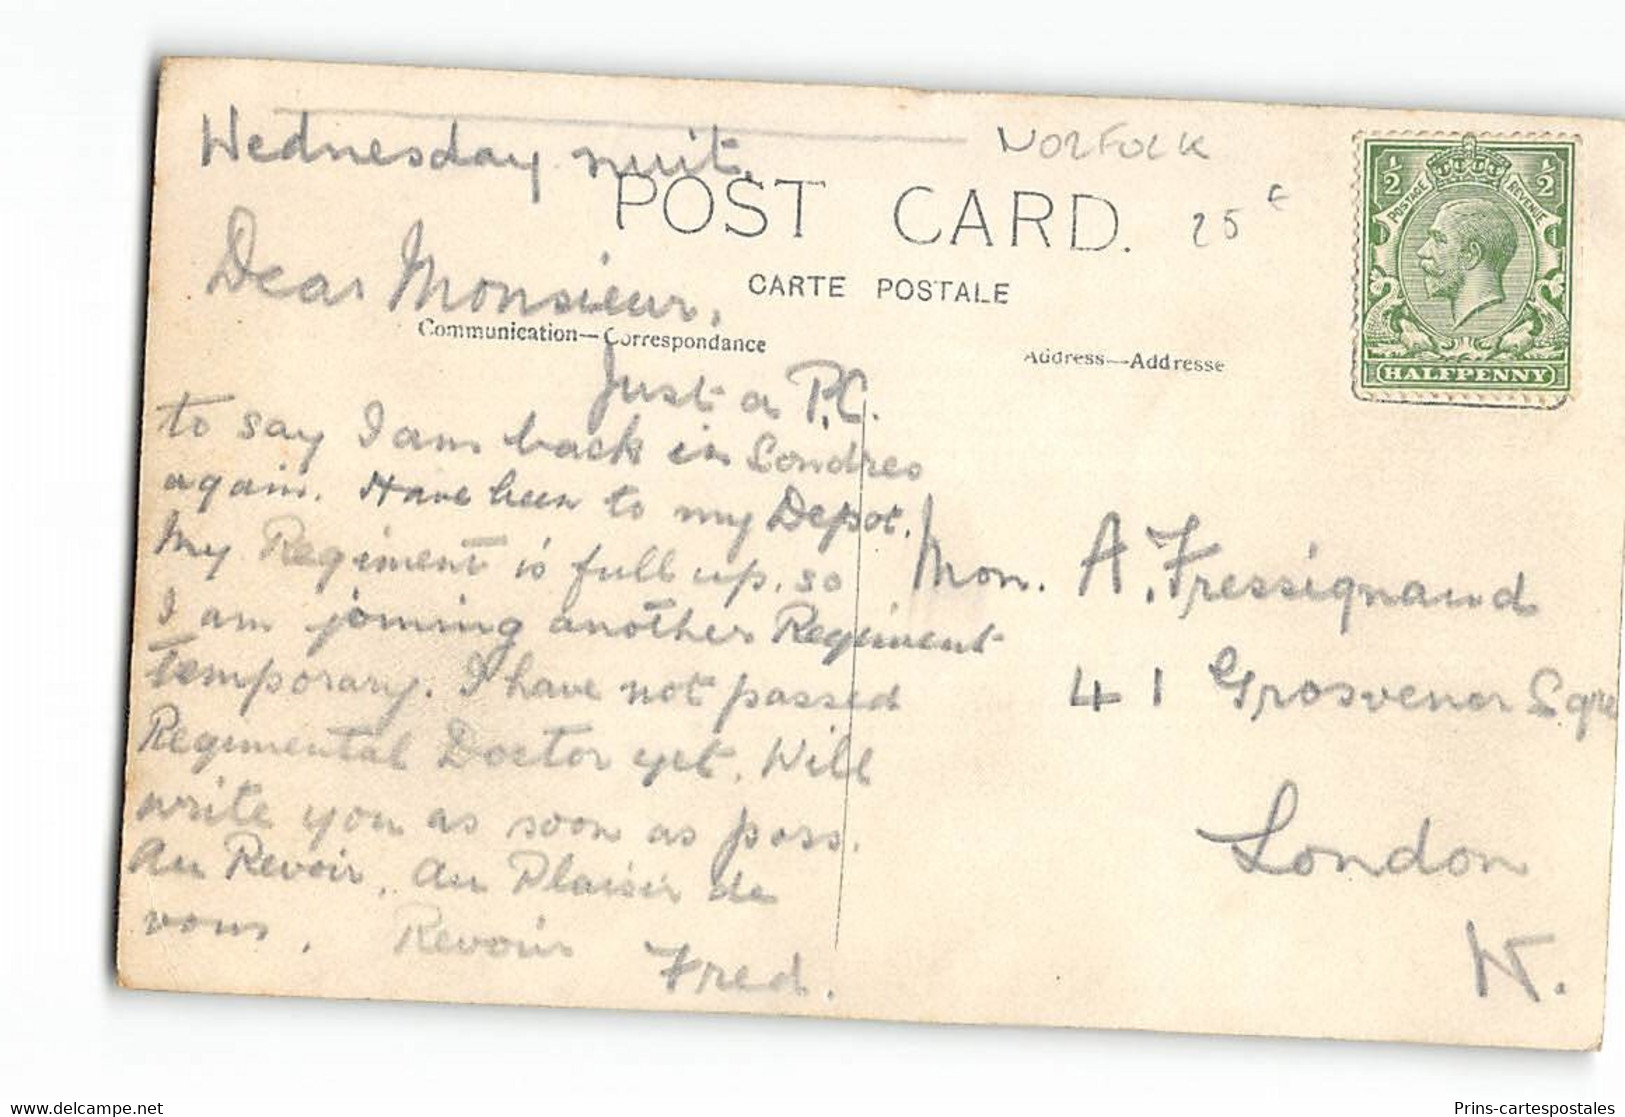 NORFOLK
25 €
Wednesday nuit.
POST CARD.
CARTE POSTALE
Dear Monsieur,
Communication—Correspondance
Address—Addresse
½ ½
POSTAGE REVENUE
HALFPENNY
Just a P.C.
to say I am back in Londres
again. Have been to my Depot.
My Regiment is full up, so
I am joining another Regiment
temporary. I have not passed
Regimental Doctor yet. Will
write you as soon as poss.
Au Revoir, Au Plaisir de
vous, Revoir
Fred.
Mon. A. Fressignaud
41 Grosvenor Sqre
London
W.
Prins-cartespostales